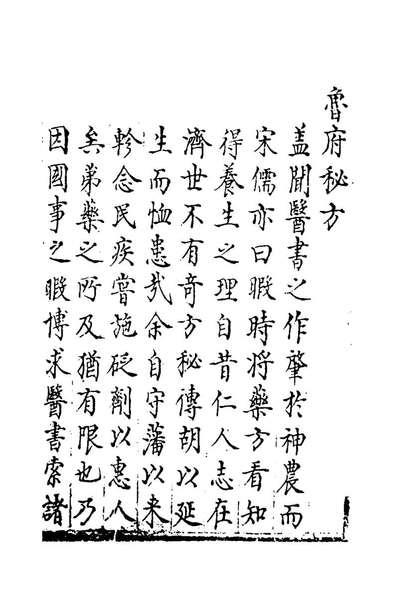 魯府秘方
盖聞醫書之作肇於神農而
宋儒亦曰暇時將藥方看知
得養生之理自昔仁人志在
濟世不有竒方秘傳胡以延
生而恤患㢤余自守藩以来
軫念民疾嘗施砭劑以惠人
矣第藥之所及猶有限也乃
因國事之暇博求醫書索諸